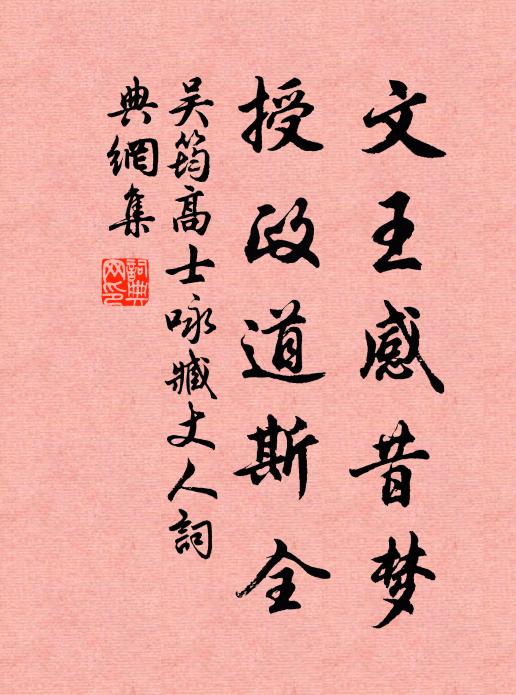 文王感昔梦
授政道斯全
吴筠高士咏臧丈人詞
典網集
詞典
网印